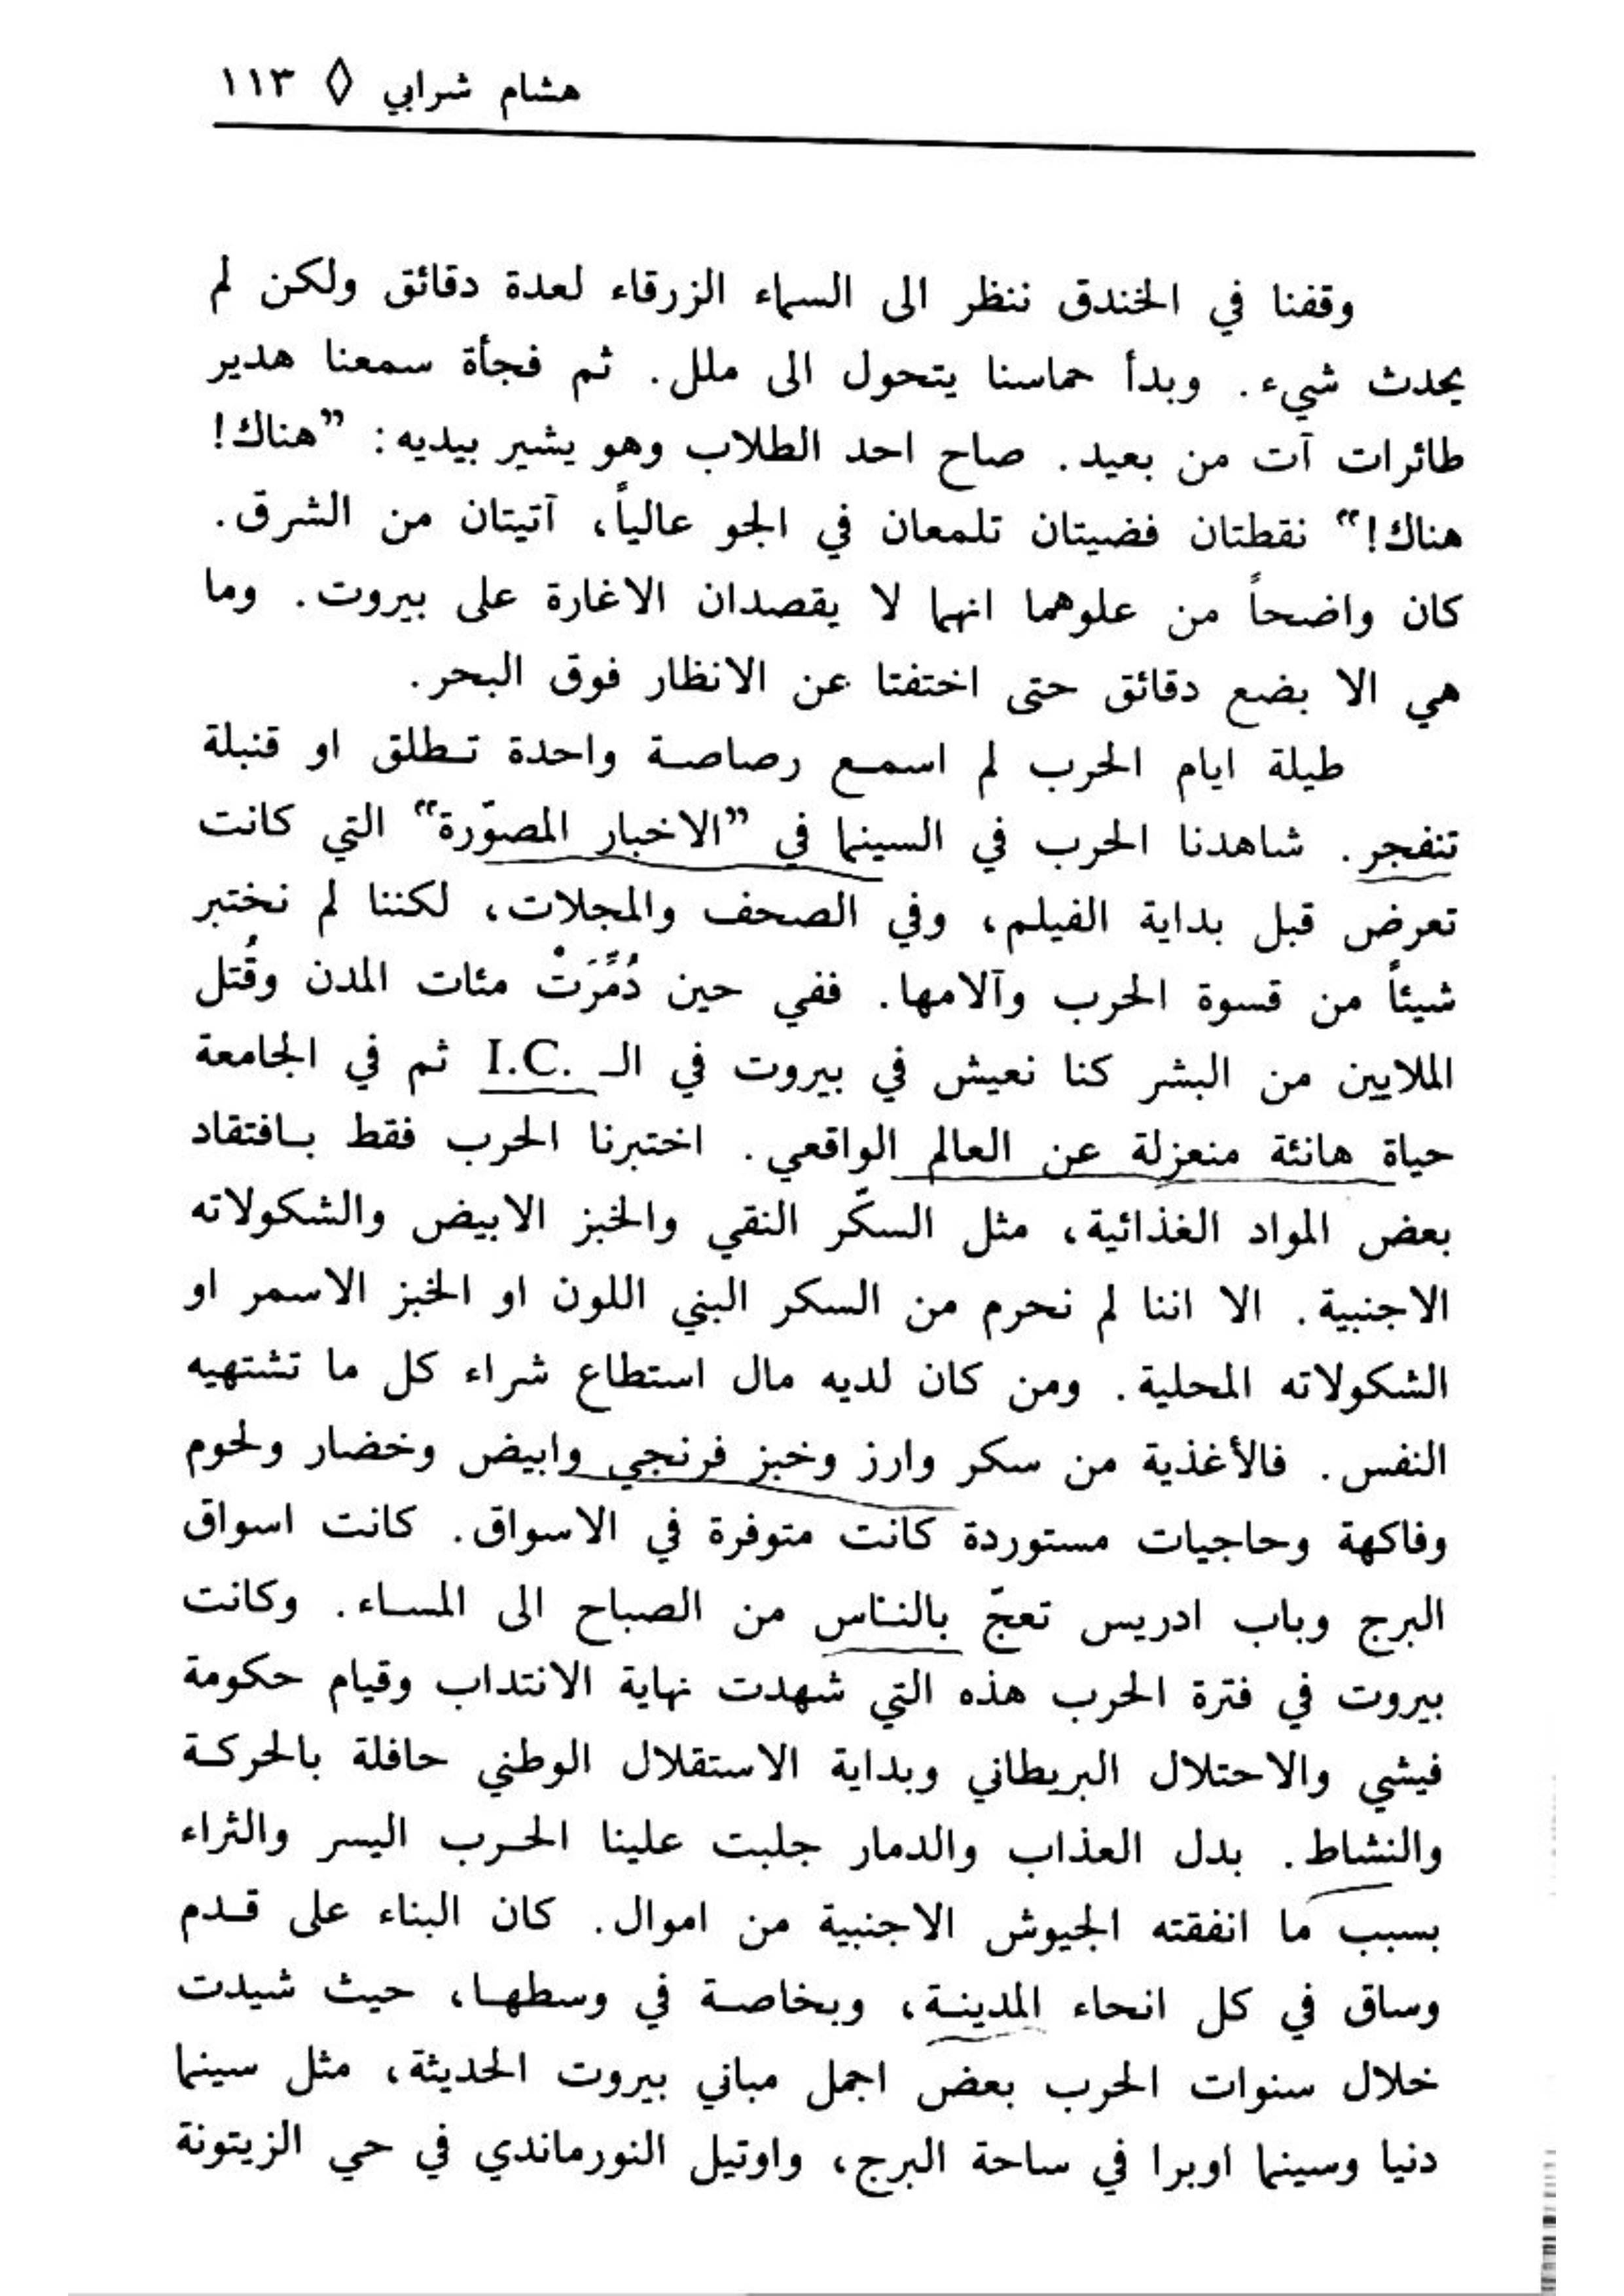 هشام شرابي ◊ ١١٣
وقفنا في الخندق ننظر الى السماء الزرقاء لعدة دقائق ولكن لم
يحدث شيء. وبدأ حماسنا يتحول الى ملل. ثم فجأة سمعنا هدير
طائرات آت من بعيد. صاح احد الطلاب وهو يشير بيديه: ”هناك!
هناك!“ نقطتان فضيتان تلمعان في الجو عالياً، آتيتان من الشرق.
كان واضحاً من علوهما انهما لا يقصدان الاغارة على بيروت. وما
هي الا بضع دقائق حتى اختفتا عن الانظار فوق البحر.
طيلة ايام الحرب لم اسمع رصاصة واحدة تطلق او قنبلة
تنفجر. شاهدنا الحرب في السينما في ”الاخبار المصوّرة“ التي كانت
تعرض قبل بداية الفيلم، وفي الصحف والمجلات، لكننا لم نختبر
شيئاً من قسوة الحرب وآلامها. ففي حين دُمِّرَتْ مئات المدن وقُتل
الملايين من البشر كنا نعيش في بيروت في الـ I.C. ثم في الجامعة
حياة هانئة منعزلة عن العالم الواقعي. اختبرنا الحرب فقط بافتقاد
بعض المواد الغذائية، مثل السكّر النقي والخبز الابيض والشكولاته
الاجنبية. الا اننا لم نحرم من السكر البني اللون او الخبز الاسمر او
الشكولاته المحلية. ومن كان لديه مال استطاع شراء كل ما تشتهيه
النفس. فالأغذية من سكر وارز وخبز فرنجي وابيض وخضار ولحوم
وفاكهة وحاجيات مستوردة كانت متوفرة في الاسواق. كانت اسواق
البرج وباب ادريس تعجّ بالناس من الصباح الى المساء. وكانت
بيروت في فترة الحرب هذه التي شهدت نهاية الانتداب وقيام حكومة
فيشي والاحتلال البريطاني وبداية الاستقلال الوطني حافلة بالحركة
والنشاط. بدل العذاب والدمار جلبت علينا الحرب اليسر والثراء
بسبب ما انفقته الجيوش الاجنبية من اموال. كان البناء على قدم
وساق في كل انحاء المدينة، وبخاصة في وسطها، حيث شيدت
خلال سنوات الحرب بعض اجمل مباني بيروت الحديثة، مثل سينما
دنيا وسينما اوبرا في ساحة البرج، واوتيل النورماندي في حي الزيتونة